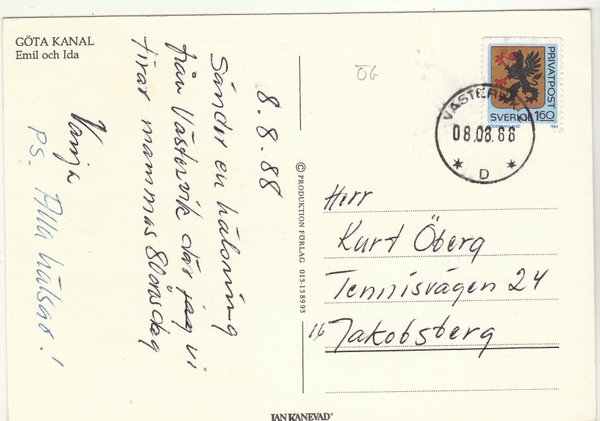 GÖTA KANAL
Emil och Ida
8.8-88
Sänder en hälsning
från Västervik där jag vi
firar mammas 80årsdag
Vanja
PS. Alla hälsar!
ÖG
PRIVATPOST
SVERIGE 160
VÄSTERVIK
08.08.88
* D *
© PRODUKTION FÖRLAG 013-138993
Herr
Kurt Öberg
Tennisvägen 24
Jakobsberg
JAN KANEVAD